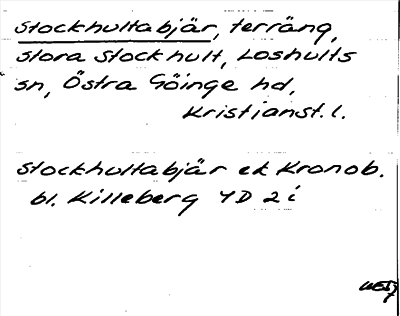 Stockhultabjär, terräng,
Stora Stockhult, Loshults
sn, Östra Göinge hd,
Kristianst. l.
Stockhultabjär ek Kronob.
bl. Killeberg 4D 2i